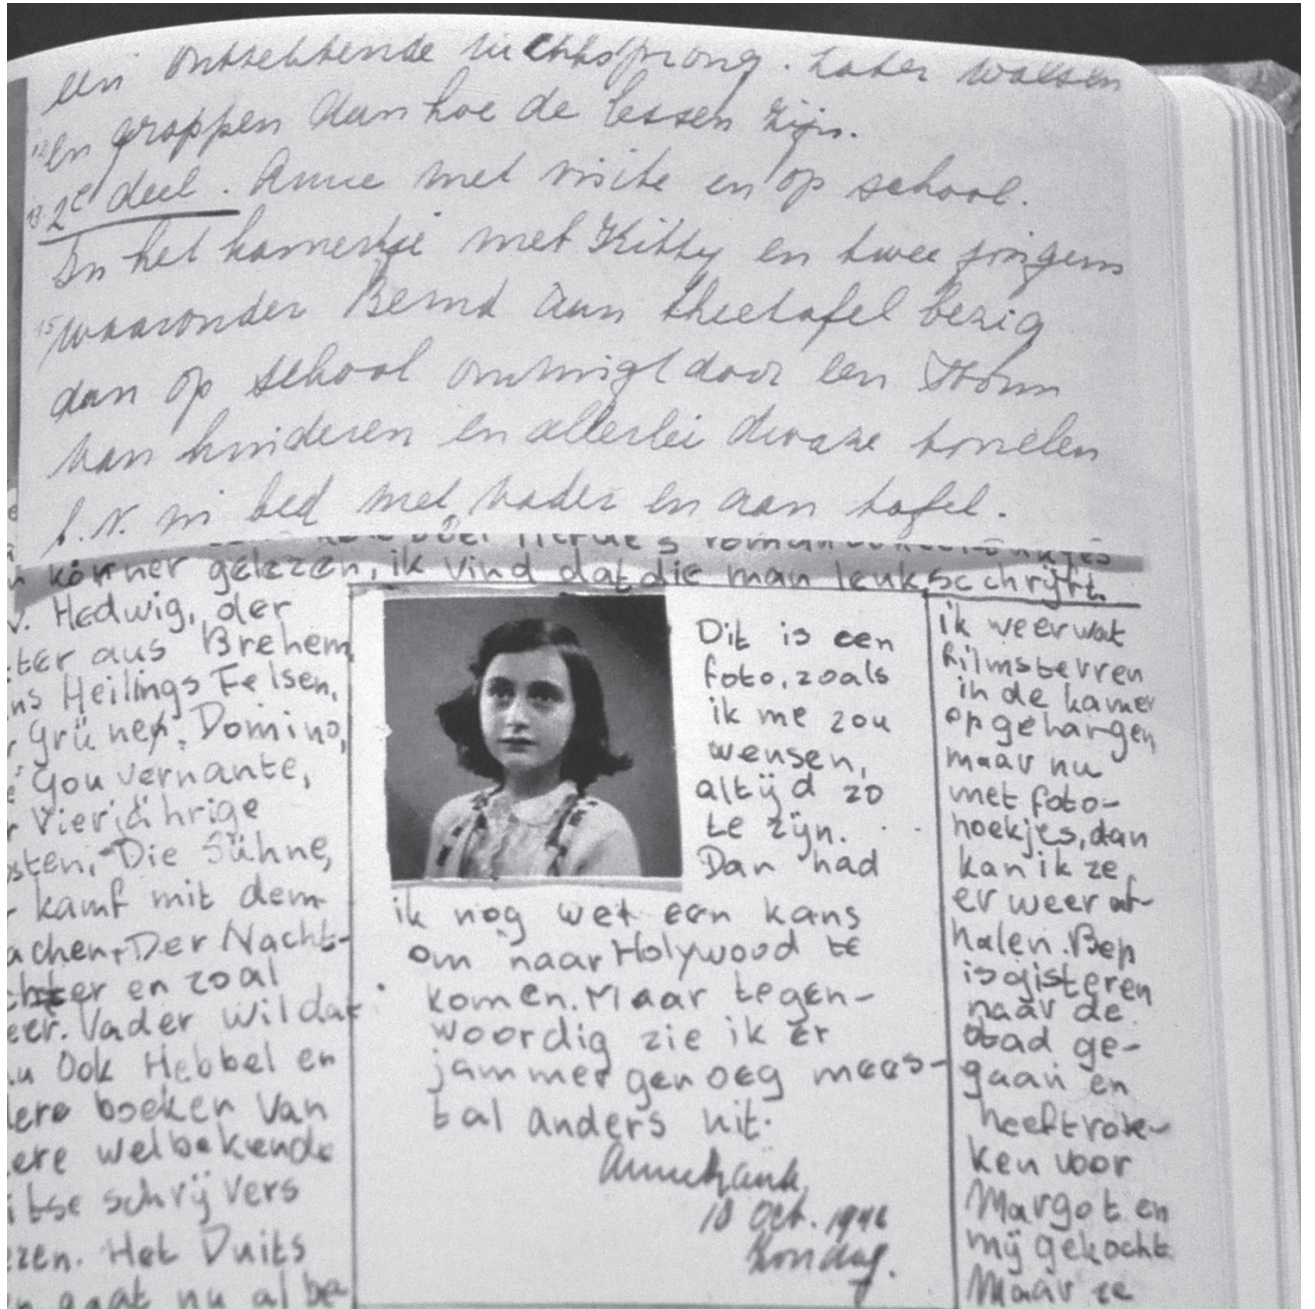 een ontzettende luchtsprong. Later walsen
en grappen dan hoe de lessen zijn.
2e deel. Anne met visite en op school.
In het kamertje met Kitty en twee jongens
waaronder Bernd aan theetafel bezig
dan op school omringt door een
van kinderen en allerlei dwaze tonelen
b.v. in bed met vader en aan tafel.
körner gelezen, ik vind dat die man leuk schrijft.
v. Hedwig, der
ter aus Brehem
ns Heilings Felsen,
Grüner, Domino,
Gouvernante,
Vierjährige
sten, Die Sühne,
kamf mit dem
achen, Der Nacht-
er en zoal
eer. Vader wil dat
nu Ook Hebbel en
ere boeken van
ere welbekende
itse schrijvers
ezen. Het Duits
gaat nu al be-
Dit is een
foto, zoals
ik me zou
wensen,
altijd zo
te zijn.
Dan had
ik nog wel een kans
om naar Holywood te
komen. Maar tegen-
woordig zie ik er
jammer genoeg mees-
tal anders uit.
Annefrank.
18 Oct. 1942
Zondag.
ik weer wat
filmsterren
in de kamer
opgehangen
maar nu
met foto-
hoekjes, dan
kan ik ze
er weer af-
halen. Bep
is gisteren
naar de
stad ge-
gaan en
heeft rok-
ken voor
Margot en
mij gekocht
Maar ze